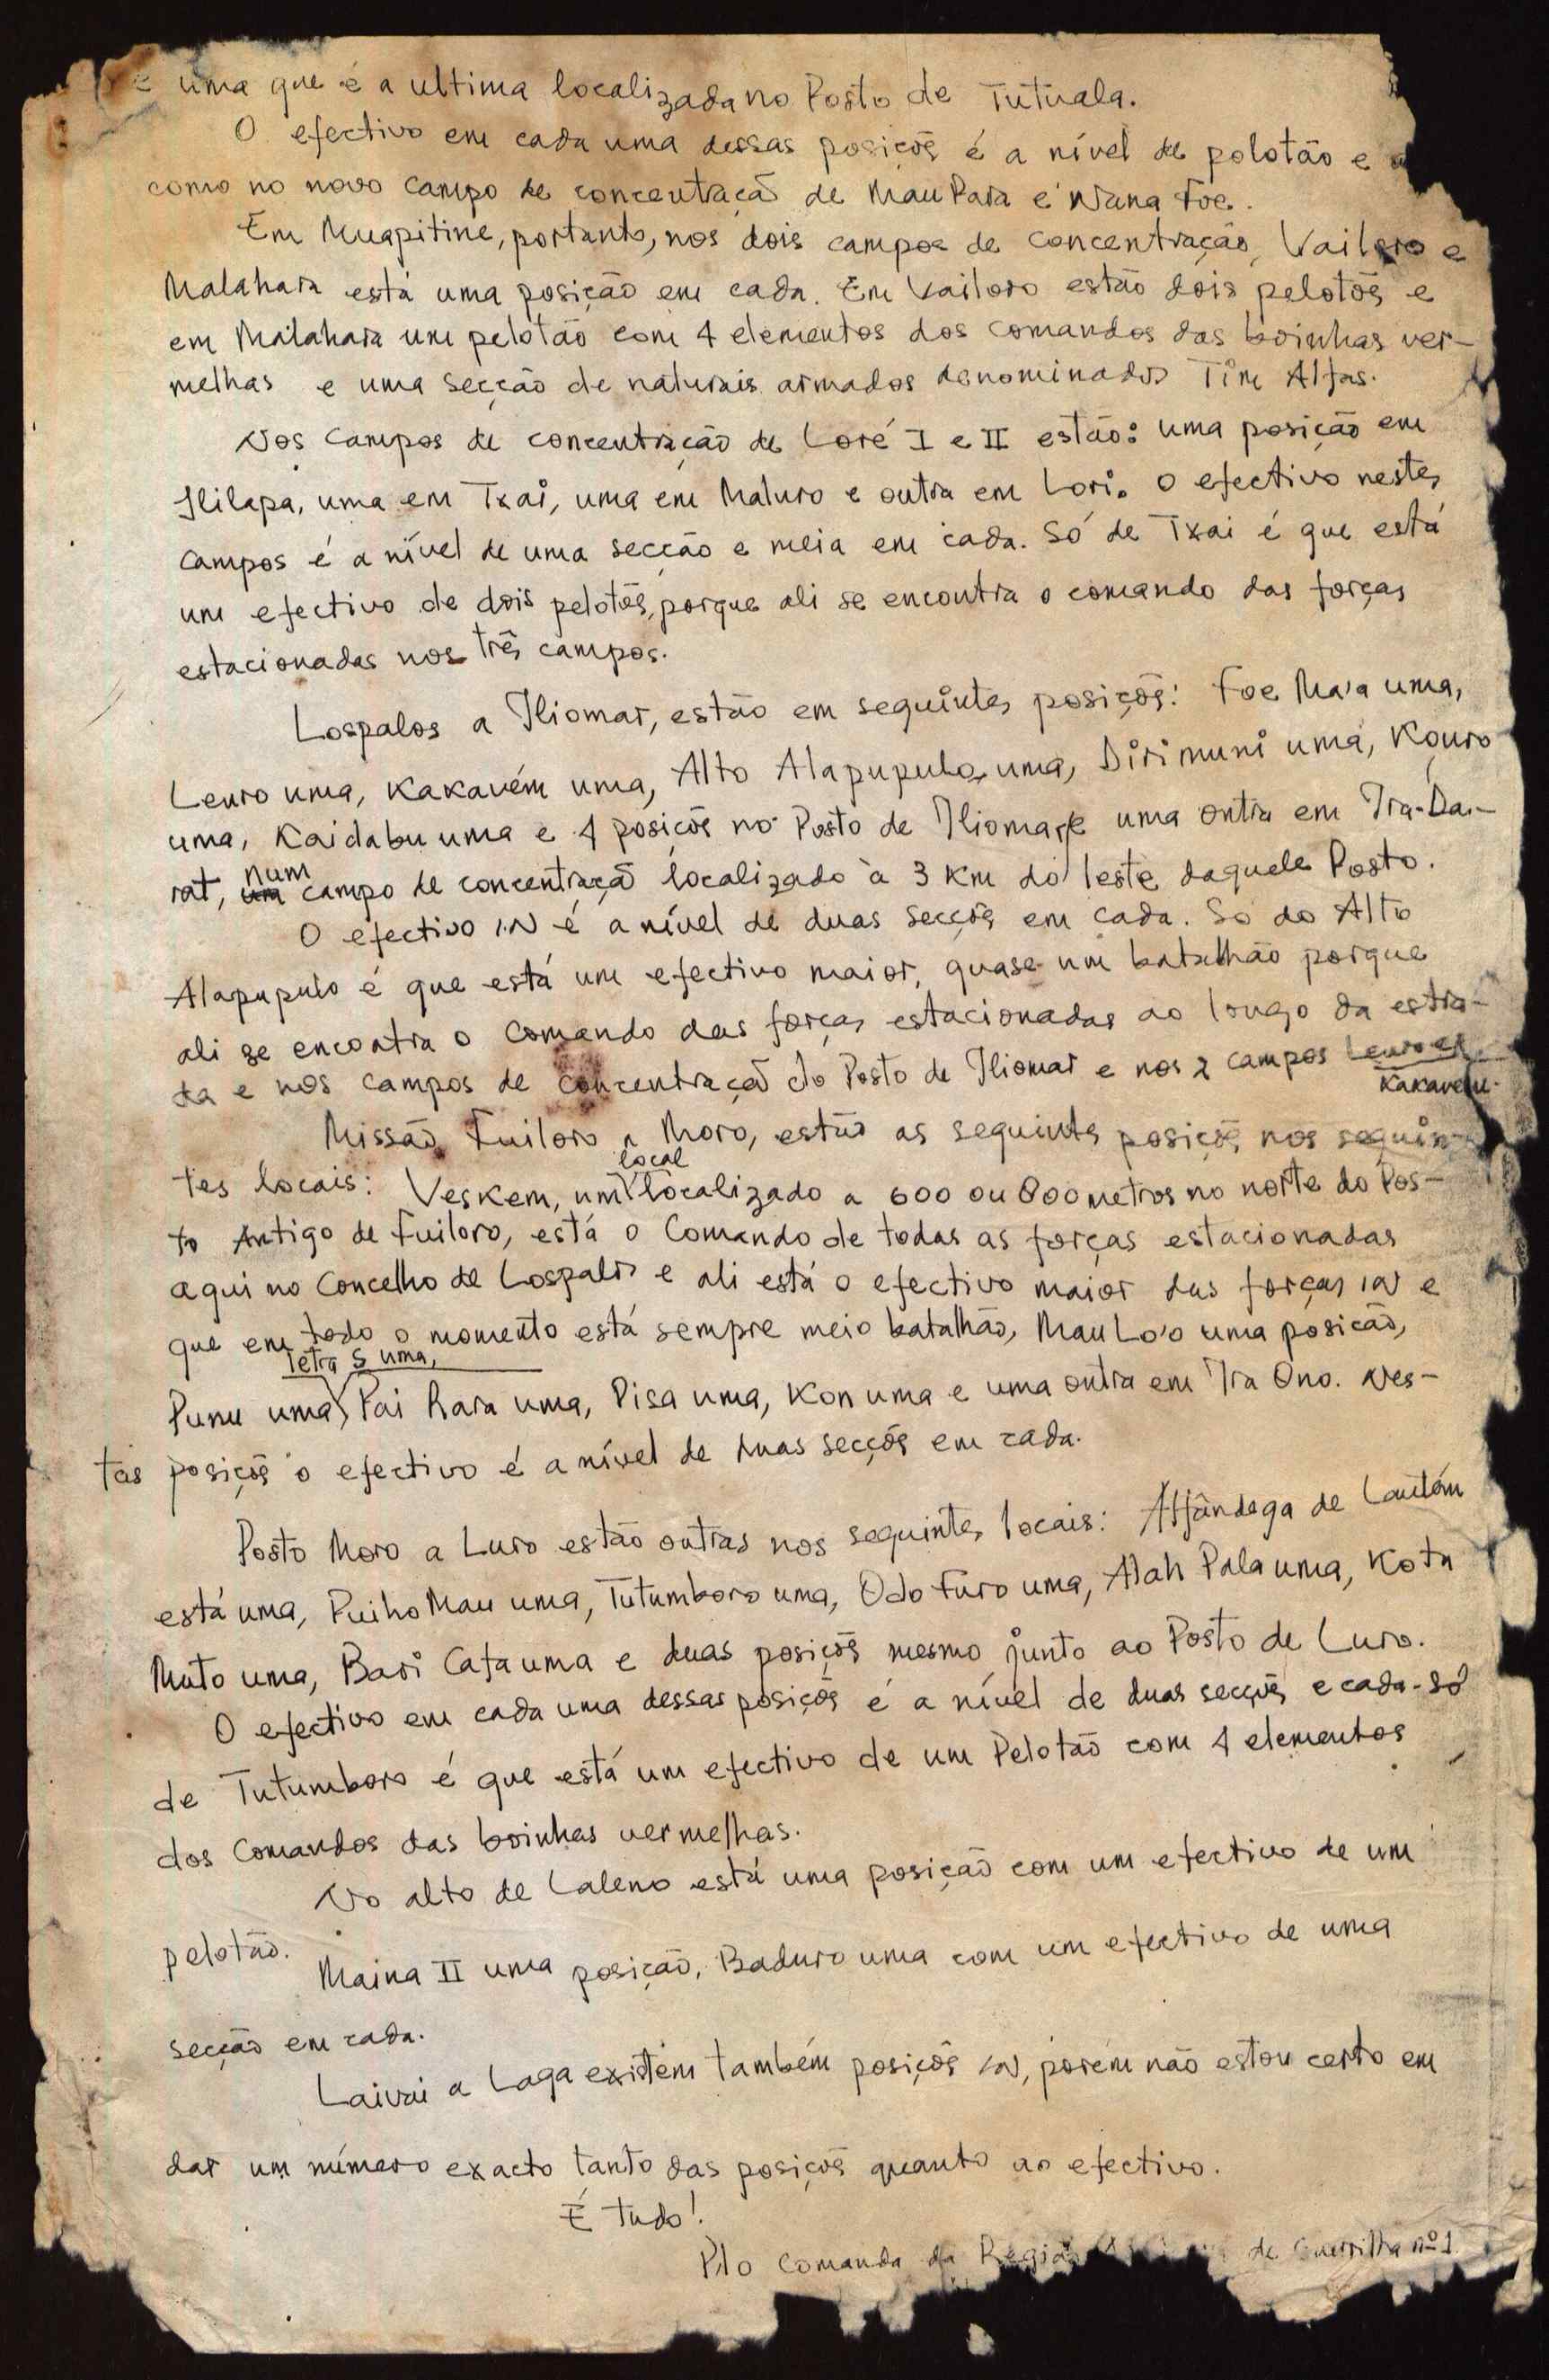 e uma que é a ultima localizada no Posto de Tutuala.
O efectivo em cada uma dessas posiçõs é a nível de polotão e
como no novo campo de concentraçã de Mau Para e Nana Foe.
Em Muapitine, portanto, nos dois campos de concentração, Vailoro e
Malahara está uma posição em cada. Em Vailoro estão dois pelotõs e
em Malahara um pelotão com 4 elementos dos comandos das boinhas ver-
melhas e uma secção de naturais armados denominados Tim Alfas.
Nos campos de concentração de Loré I e II estão: uma posição em
Ililapa, uma em Txai, uma em Maluro e outra em Lori. O efectivo nestes
campos é a nível de uma secção e meia em cada. Só de Txai é que está
um efectivo de dois pelotõs, porque ali se encontra o comando das forças
estacionadas nos três campos.
Lospalos a Iliomar, estão em seguintes posiçõs: Foe Ma'a uma,
Leuro uma, Kakavém uma, Alto Alapupulo uma, Dirimuni uma, Kouro
uma, Kaidabu uma e 4 posiçõs no Posto de Iliomar e uma outra em Ira-Da-
rat, um num campo de concentraçã localizado à 3 Km do leste daquele Posto.
O efectivo IN é a nível de duas secçõs em cada. Só do Alto
Alapupulo é que está um efectivo maior, quase um batalhão porque
ali se encontra o comando das forças estacionadas ao longo da estra-
da e nos campos de concentraçã do Posto de Iliomar e nos 2 campos Leuro e
Kakavem.
Missão Fuiloro a Moro, estão as seguintes posiçõs nos seguin-
tes locais: Veskem, um local localizado a 600 ou 800 metros no norte do Pos-
to Antigo de Fuiloro, está o Comando de todas as forças estacionadas
aqui no Concelho de Lospalos e ali está o efectivo maior das forças IN e
que em todo o momento está sempre meio batalhão, Mau Lo'o uma posição,
Punu uma, Tetra S uma, Pai Rara uma, Pisa uma, Kon uma e uma outra em Ira Ono. Nes-
tas posiçõs o efectivo é a nível de duas secçõs em cada.
Posto Moro a Luro estão outras nos seguintes locais: Alfândega de Lautém
está uma, Puiho Mau uma, Tutumboro uma, Odo Furo uma, Alah Pala uma, Kota
Muto uma, Bari Cafa uma e duas posiçõs mesmo junto ao Posto de Luro.
O efectivo em cada uma dessas posiçõs é a nível de duas secçõs e cada. Só
de Tutumboro é que está um efectivo de um Pelotão com 4 elementos
dos Comandos das boinhas vermelhas.
No alto de Laleno está uma posição com um efectivo de um
pelotão.
Maina II uma posição, Baduro uma com um efectivo de uma
secção em cada.
Laivai a Laga existem também posiçõs IN, porém não estou certo em
dar um número exacto tanto das posiçõs quanto ao efectivo.
É tudo!
P'lo Comando da Região de Guerrilha nº 1